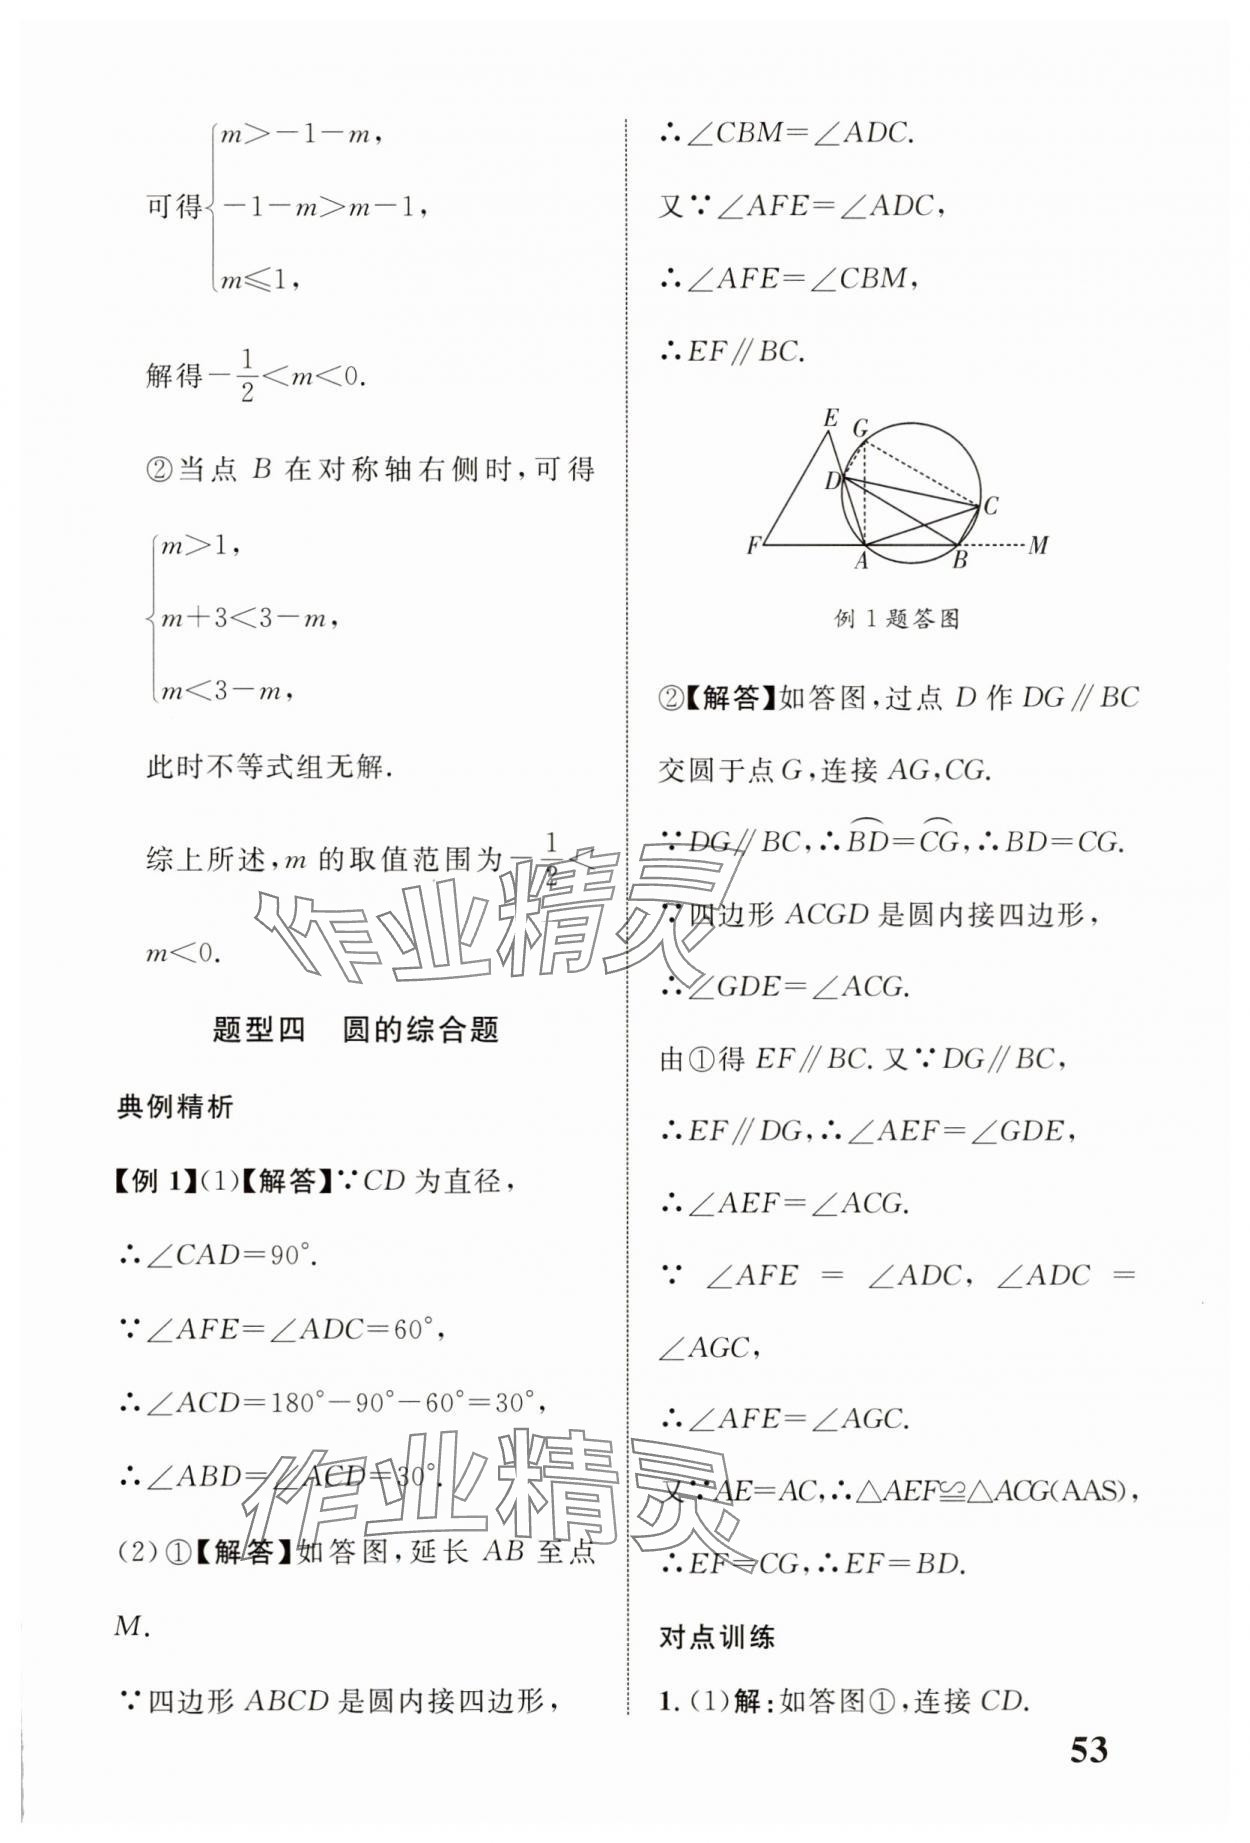 可得{m>-1-m,
-1-m>m-1,
m≤1,
解得-1/2<m<0.
②当点 B 在对称轴右侧时,可得
{m>1,
m+3<3-m,
m<3-m,
此时不等式组无解.
综上所述,m 的取值范围为-1/2<
m<0.
题型四 圆的综合题
典例精析
【例 1】(1)【解答】∵CD 为直径,
∴∠CAD=90°.
∵∠AFE=∠ADC=60°,
∴∠ACD=180°-90°-60°=30°,
∴∠ABD=∠ACD=30°.
(2)①【解答】如答图,延长 AB 至点
M.
∵四边形 ABCD 是圆内接四边形,
∴∠CBM=∠ADC.
又∵∠AFE=∠ADC,
∴∠AFE=∠CBM,
∴EF∥BC.
E
G
D
C
F
A
B
M
例 1 题答图
②【解答】如答图,过点 D 作 DG∥BC
交圆于点 G,连接 AG,CG.
∵DG∥BC,∴⌒BD=⌒CG,∴BD=CG.
∵四边形 ACGD 是圆内接四边形,
∴∠GDE=∠ACG.
由①得 EF∥BC.又∵DG∥BC,
∴EF∥DG,∴∠AEF=∠GDE,
∴∠AEF=∠ACG.
∵ ∠AFE = ∠ADC, ∠ADC =
∠AGC,
∴∠AFE=∠AGC.
又∵AE=AC,∴△AEF≌△ACG(AAS),
∴EF=CG,∴EF=BD.
对点训练
1.(1)解:如答图①,连接 CD.
53
作业精灵
作业精灵